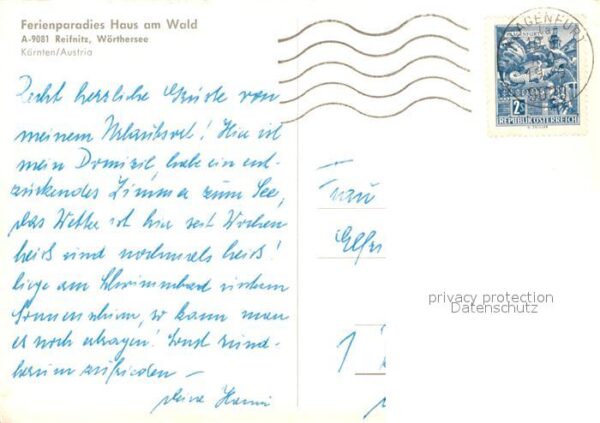 Ferienparadies Haus am Wald
A-9081 Reifnitz, Wörthersee
Kärnten/Austria
Recht herzliche Grüße von
meinem Urlaubsort! Hier ist
mein Domizil, habe ein ent-
zückendes Zimmer zum See,
das Wetter ist hier seit Wochen
heiß und nochmals heiß!
liege am Schwimmbad unterm
Sonnenschirm, so kann man
es noch ertragen! Sonst rund-
herum zufrieden –
deine Hanni
KLAGENFURT
2S
REPUBLIK ÖSTERREICH
Frau
1
privacy protection
Datenschutz